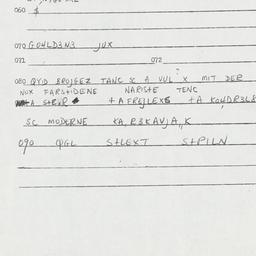 060 $
070 GOHLD3N3 JUX
071 072
080 QYD BROJGEZ TANC X A VUL X MIT DER
NUX FARSTIDENE NARISHE TENC
+A FREJLEXS +A KOHDR3L8
SC MODERNE KA, R3KAVJA, K
090 QPGL S+LEXT S+PILN